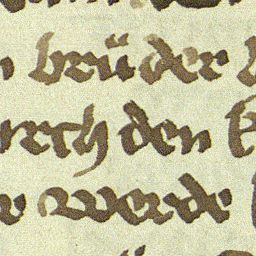 brü der
urch den
r werde